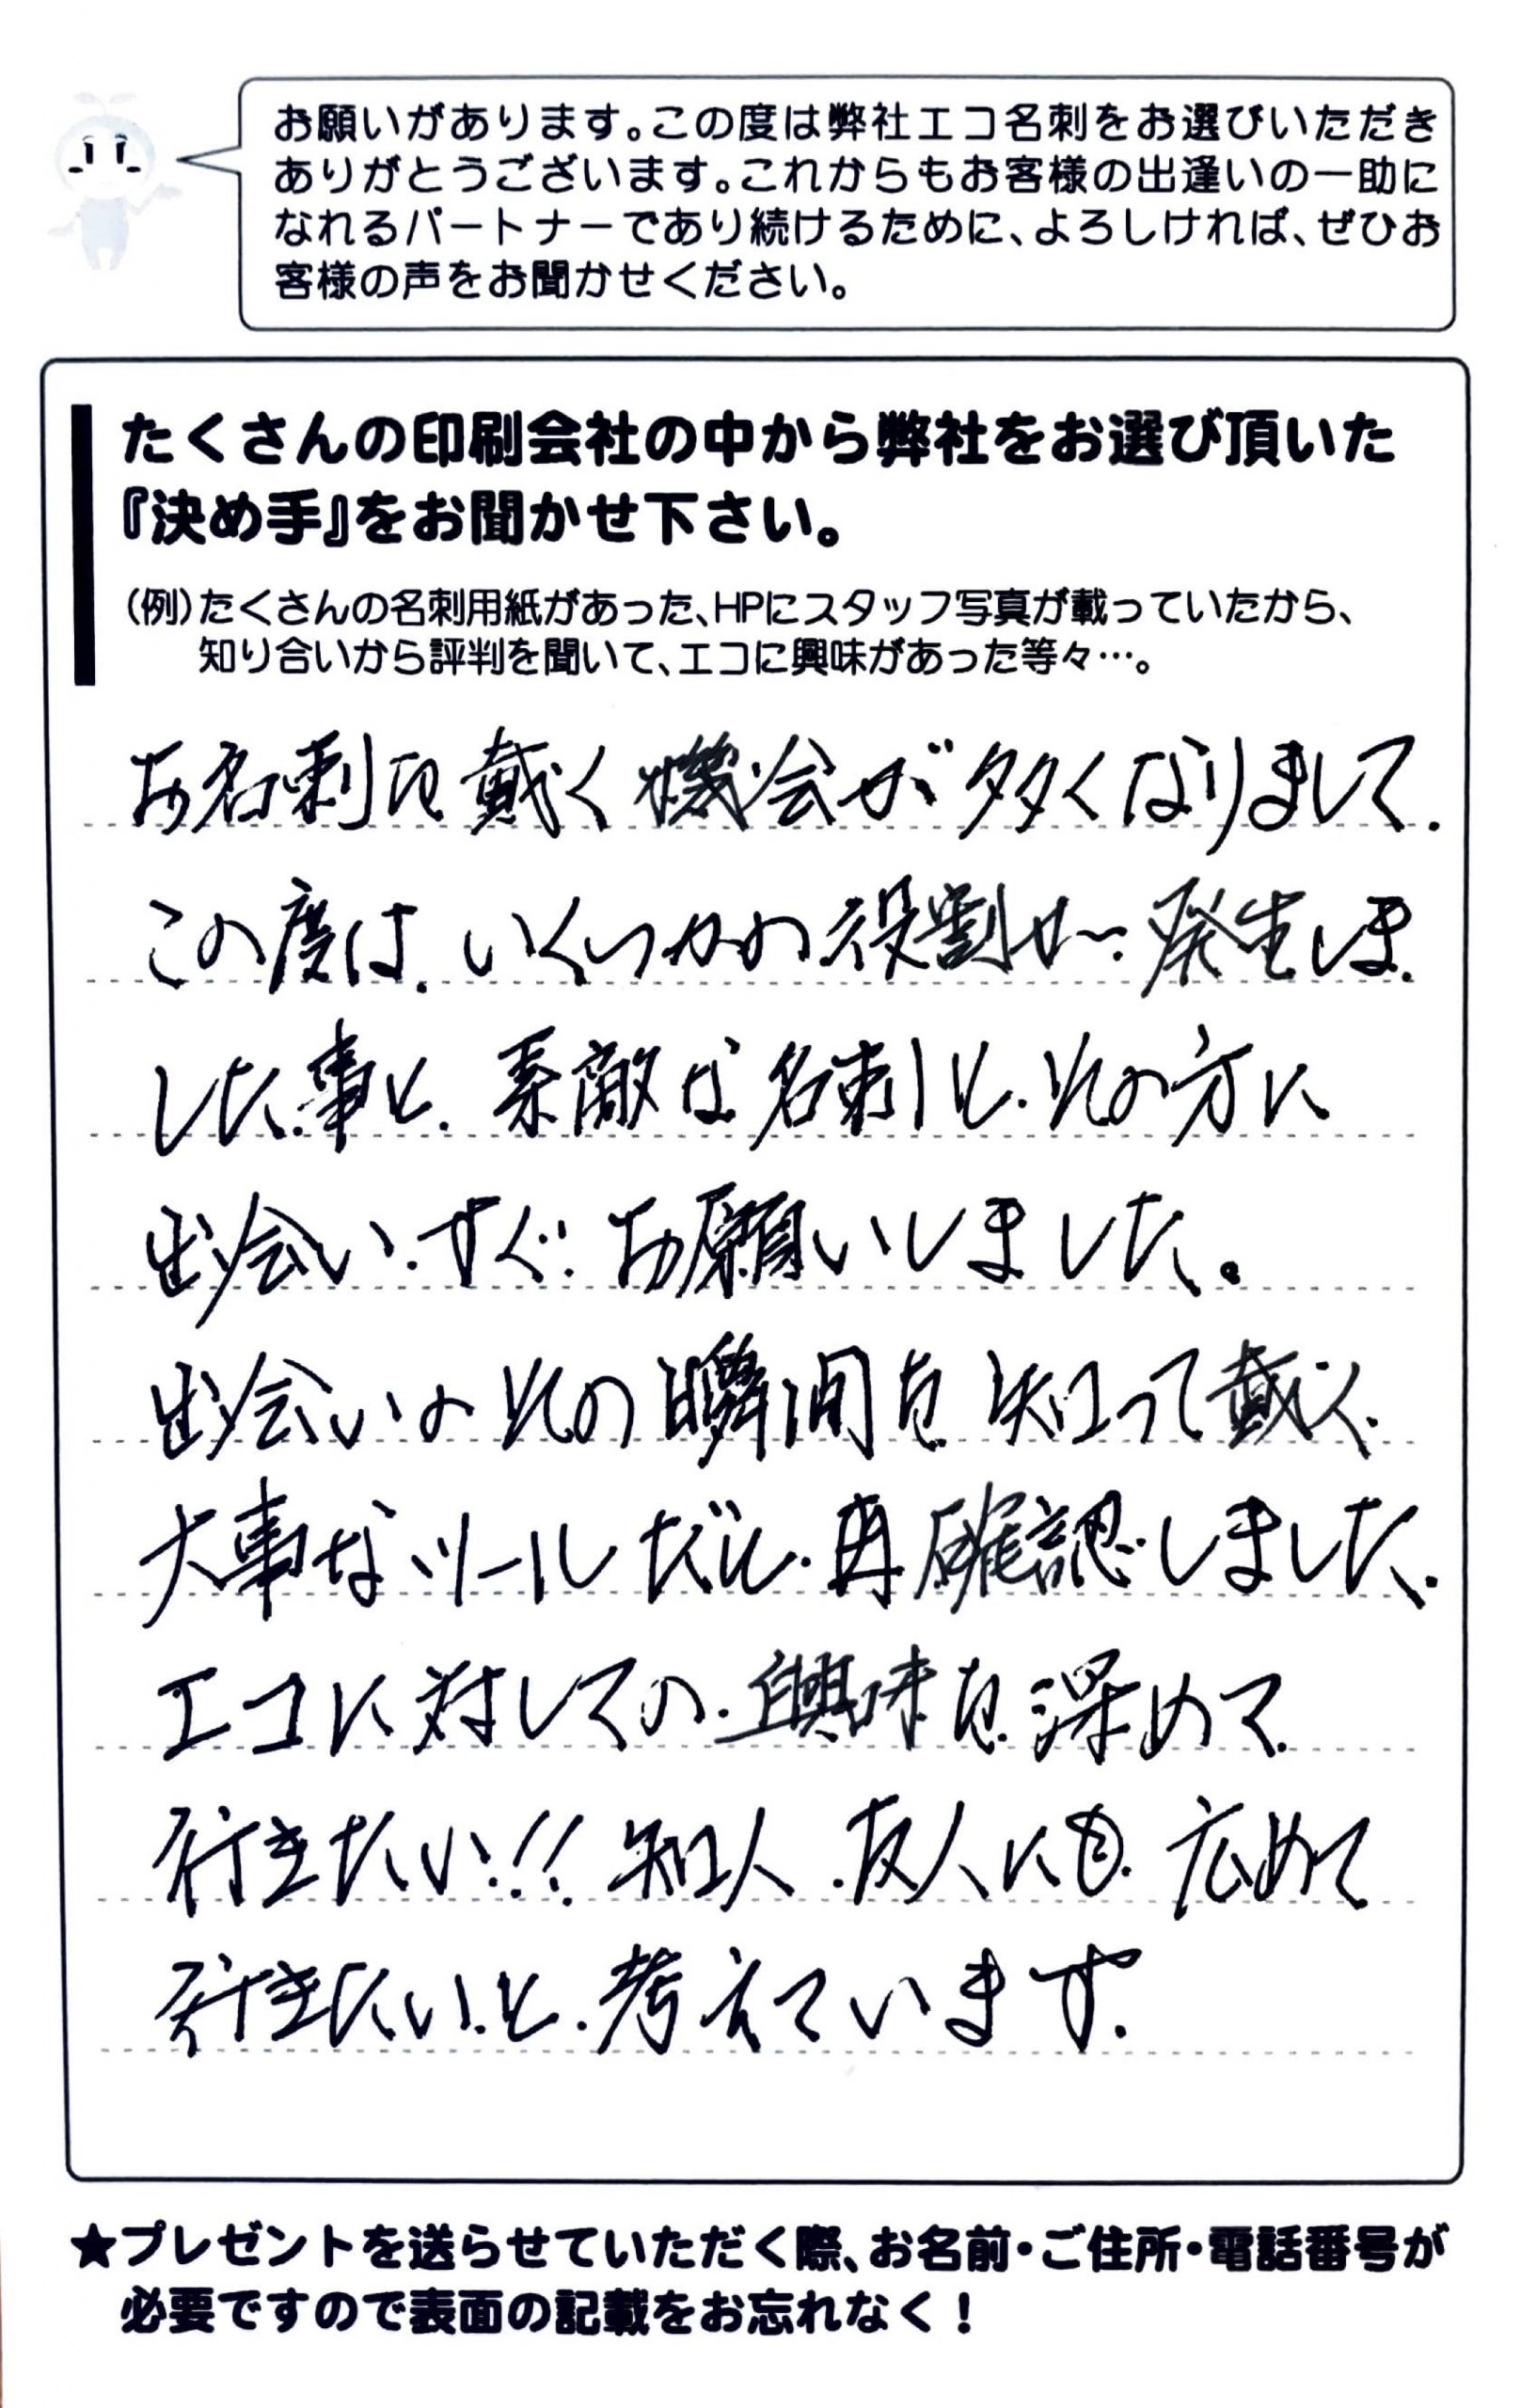 お願いがあります。この度は弊社エコ名刺をお選びいただき
ありがとうございます。これからもお客様の出逢いの一助に
なれるパートナーであり続けるために、よろしければ、ぜひお
客様の声をお聞かせください。
たくさんの印刷会社の中から弊社をお選び頂いた
『決め手』をお聞かせ下さい。
(例)たくさんの名刺用紙があった、HPにスタッフ写真が載っていたから、
知り合いから評判を聞いて、エコに興味があった等々…。
お名刺を戴く機会が多くなりまして、
この度は、いくつかの役割が発生しま
した事と、素敵な名刺と、その方に
出会い、すぐ、お願いしました。
出会いのその瞬間を知って戴く、
大事なツールだと、再確認しました、
エコに対しての、興味を深めて
行きたい!! 知人、友人にも、広めて
行きたいと、考えています。
★プレゼントを送らせていただく際、お名前・ご住所・電話番号が
必要ですので表面の記載をお忘れなく!